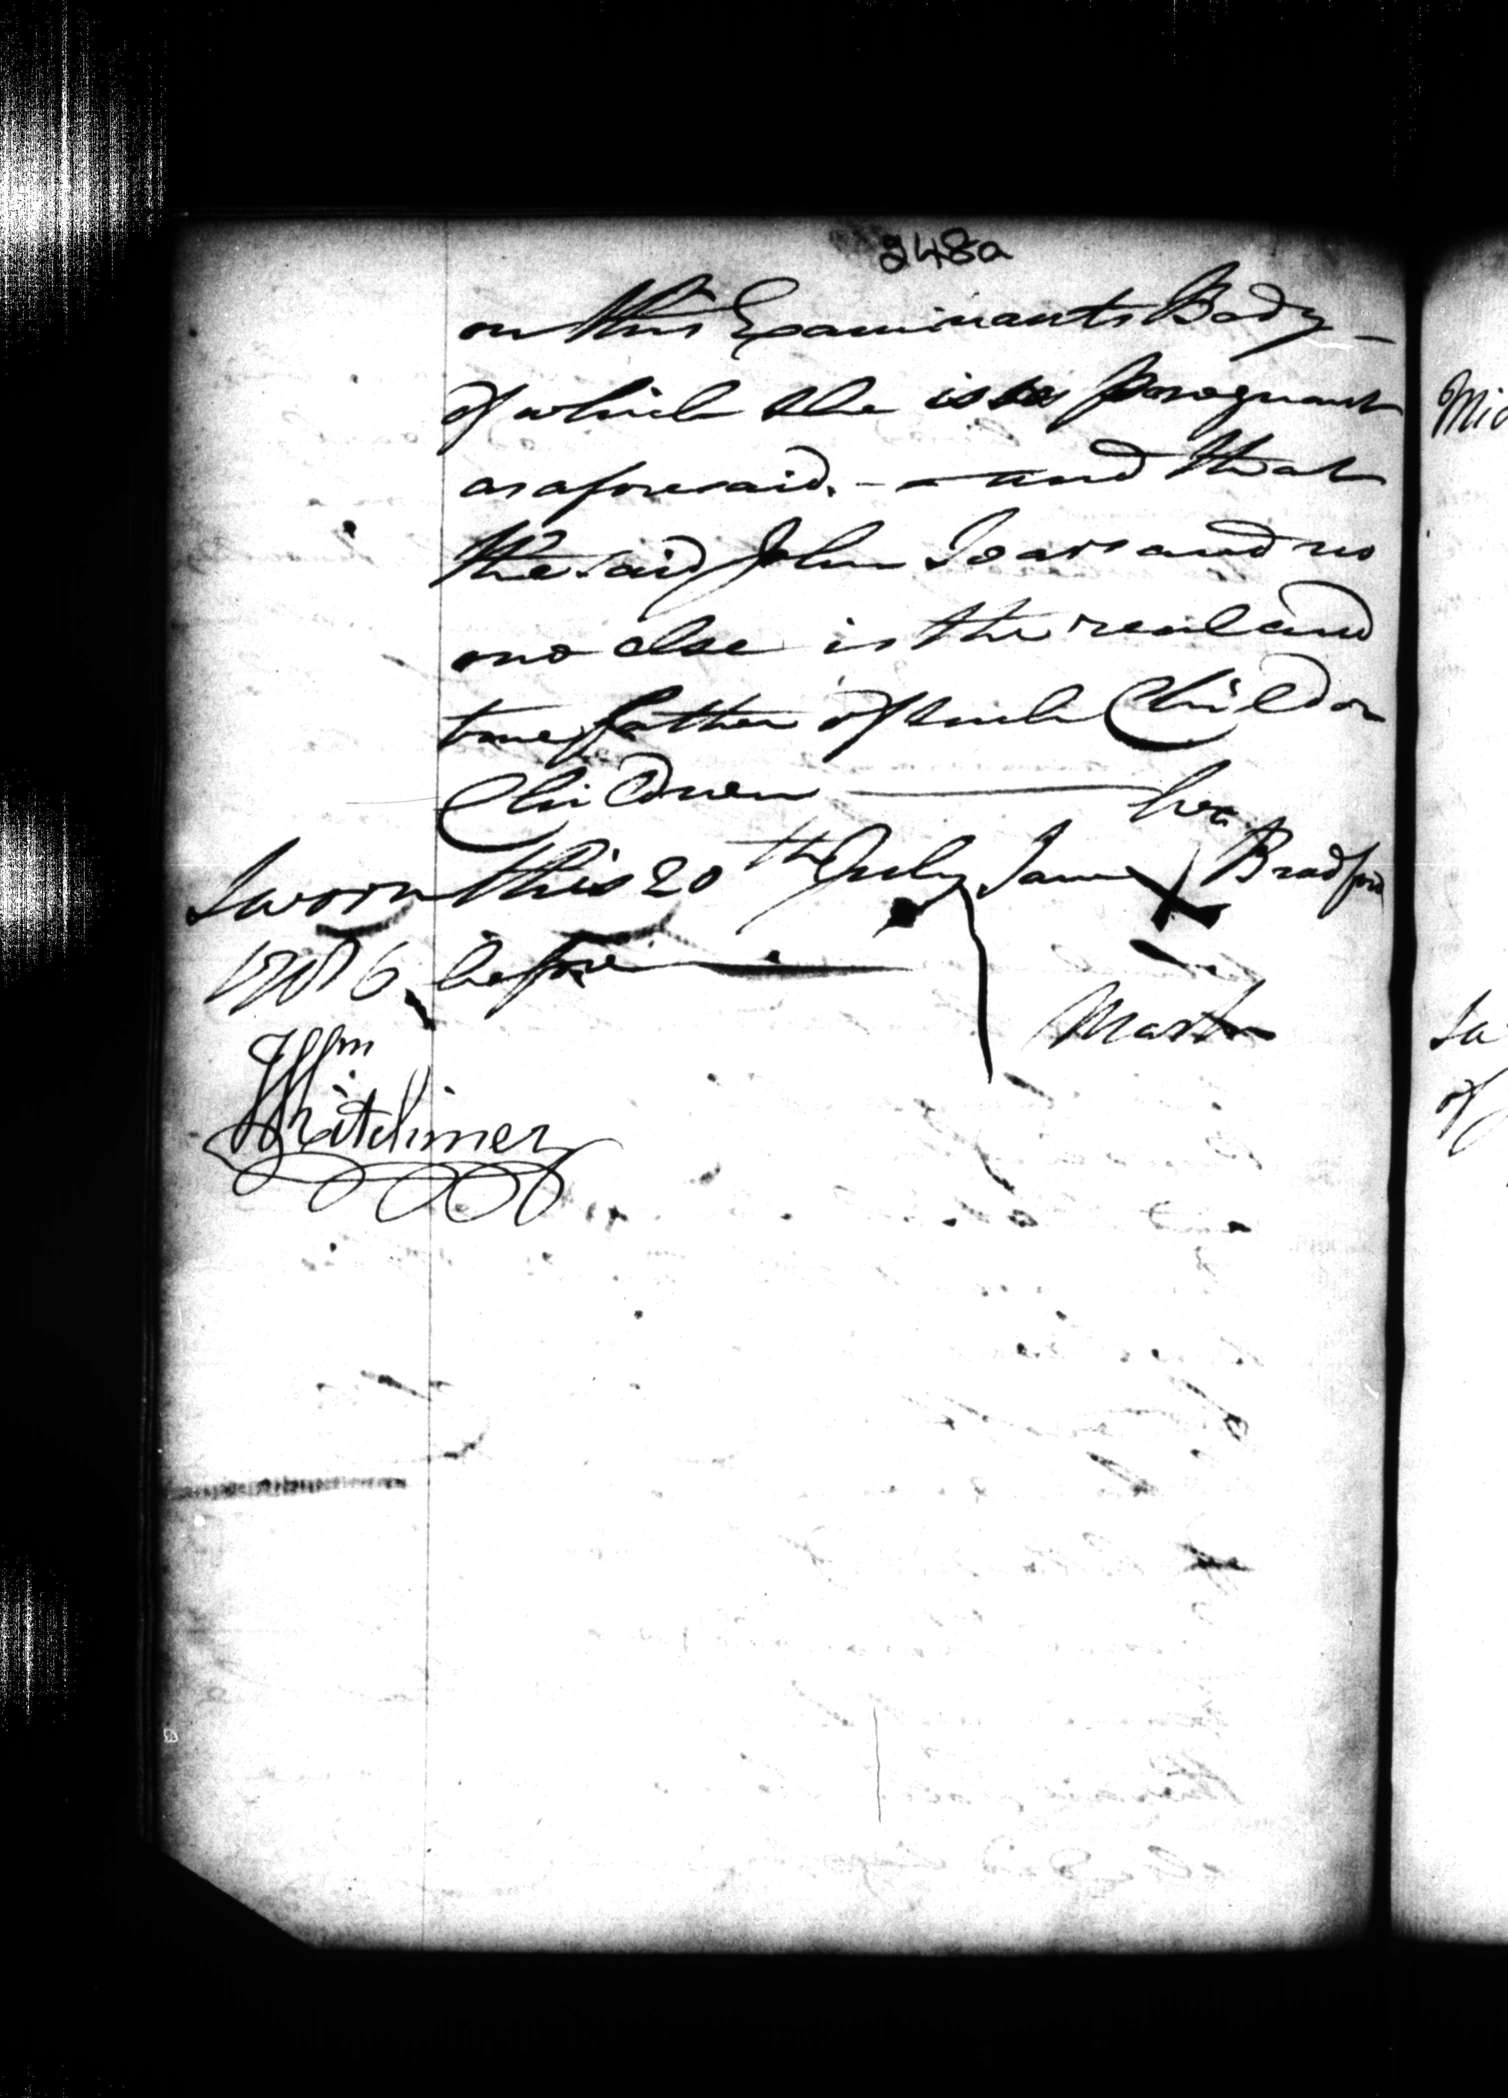 248a
on this Examinants Body -
of which she is so pregnant
as aforesaid. - - and that
the said John Sears and no
one else is the real and
true father of such Child or
Children her
Sworn this 20th July Jane X Bradford
1786 before
Mark
Wm
Kitchiner
Mid
Sa
of